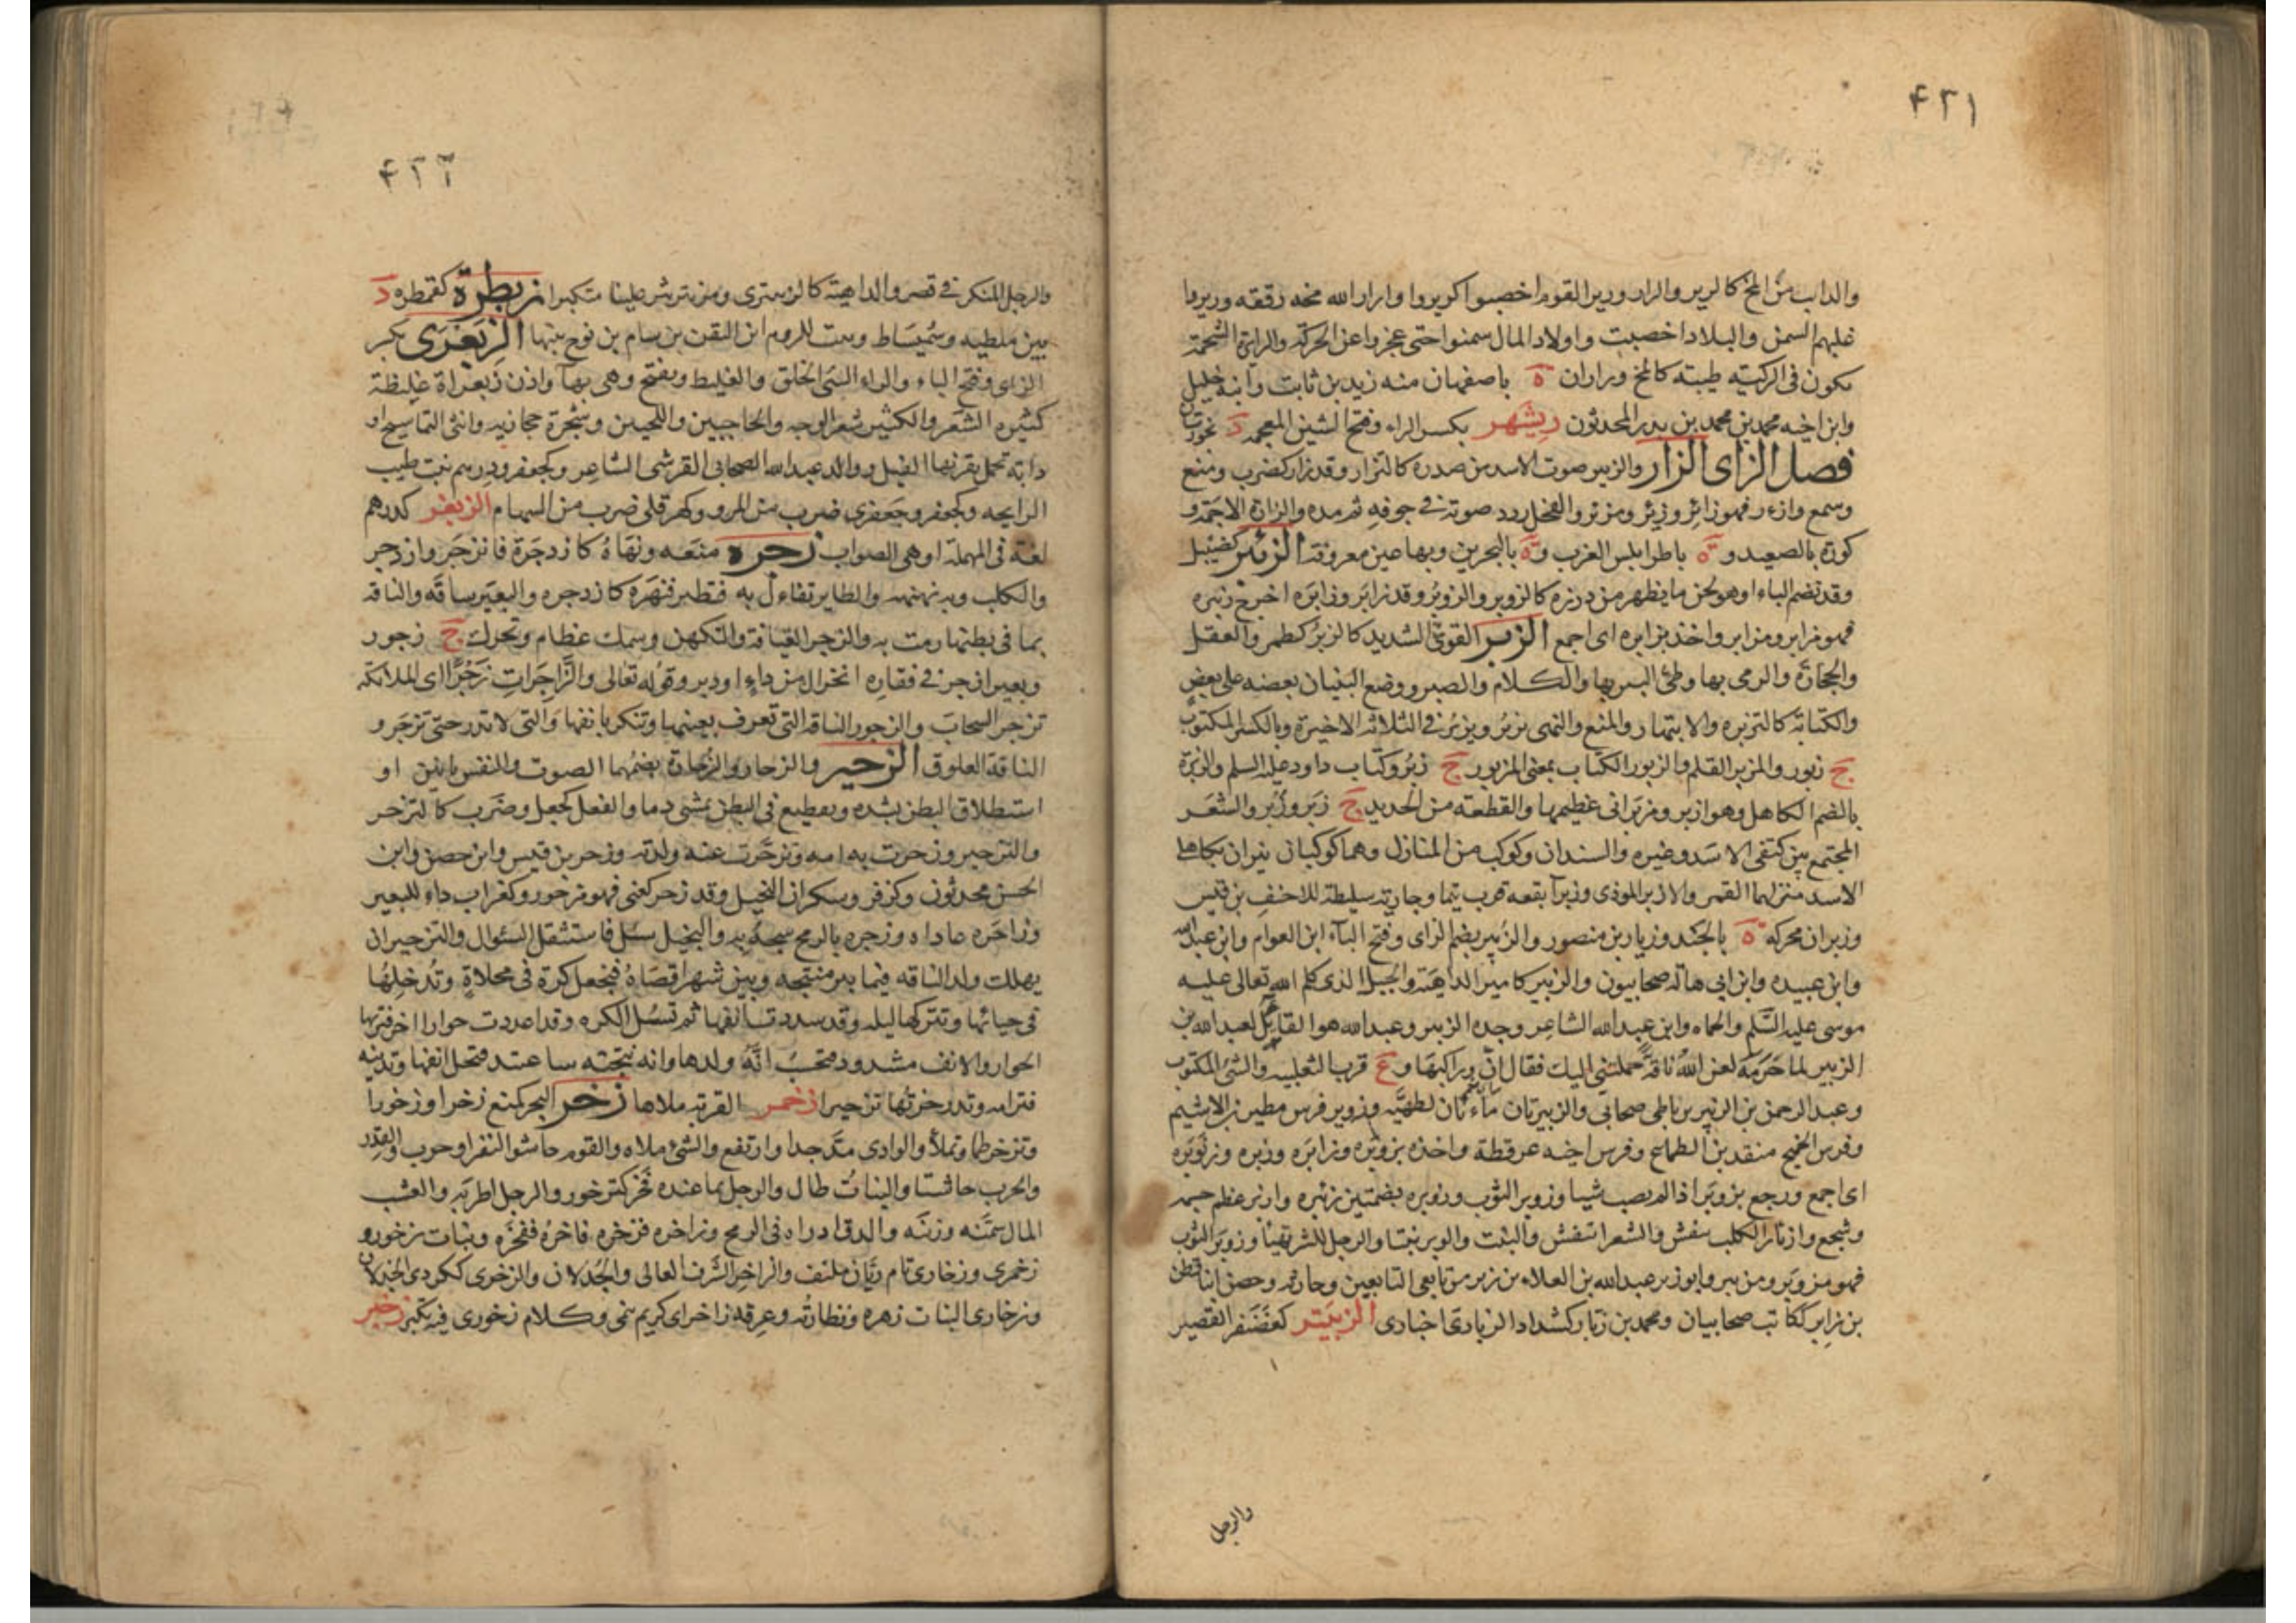 ۴۲۱
والذاب من المخ كالرير والرار ورير القوم اخصبوا كريروا وارار الله مخه رققه وريروا
غلبهم السمن والبلاد اخصبت واولاد المال سمنوا حتى عجزوا عن الحركة والرائة الشحمة
تكون فى الركبة طيبة كالمخ وراران ة باصفهان منه زيد بن ثابت وابنه خليل
وابن اخيه محمد بن محمد بن بدر المحدثون ريشهر بكسر الراء وفتح الشين المعجمة د بخوزستان
فصل الزاى الزار والزير صوت الاسد من صدره كالتزار وقد زار كضرب ومنع
وسمع وازءر فهو زائر وزئر ومزئر والفحل ردد صوته فى جوفه ثم مده والزارة الاجمة و
كورة بالصعيد و ة باطرابلس الغرب و ة بالبحرين وبها عين معروفة الزئبر كضئبل
وقد تضم الباء او هو لحن ما يظهر من درزه كالزوبر والزوبر وقد زابر وزابره اخرج زئبره
فهو مزابر ومزابر واخذ بزابره اى اجمع الزبر القوى الشديد كالزبر كطمر والعقل
والحجارة والرمى بها وطى البير بها والكلام والصبر ووضع البنيان بعضه على بعض
والكتابة كالتزبره والانتهار والمنع والنهى يزبر ويزبر فى الثلاثة الاخيرة وبالكسر المكتوب
ج زبور والمزبر القلم والزبور الكتاب بمعنى المزبور ج زبر وكتاب داود عليه السلم والزبرة
بالضم الكاهل وهو ازبر ومزبرانى عظيمها والقطعة من الحديد ج زبر وزبر والشعر
المجتمع بين كتفى الاسد وغيره والسندان وكوكب من المنازل وهما كوكبان نيران بكاهلى
الاسد منزلهما القمر والازبر الموذى وزبرآ بقعه قرب تيما وجارية سليطة للاحنف بن قيس
وزبران محركه ة بالجند وزبار بن منصور والزبير بضم الزاى وفتح البآء ابن العوام وابن عبد الله
وابن عبيده وابن ابى هالة صحابيون والزبير كامير الداهية والجبل الذى كلم الله تعالى عليه
موسى عليه السلم والحماه وابن عبد الله الشاعر وجده الزبير وعبد الله هو القائل لعبد الله بن
الزبير لما حرمه لعن الله ناقة حملتنى اليك فقال ان وراكبها و ع قرب الثعلبيه والشئ المكتوب
وعبد الرحمن بن الزبير بن باطى صحابى والزبيرتان ماءتان لطهية وزوبر فرس مطير بن الاشيم
وفرس الجميح منقذ بن الطماح وفرس اخيه عرفطة واخذه بزوبره وزابره وزبره وزنوبره
اى اجمع ورجع بزوبر اذا لم يصب شيا وزوبر الثوب وزوبره بضمتين زئبره وازبر عظم جسمه
وشجع وازبأر الكلب تنفش والشعر انتفش والنبت والوبر نبتا والرجل للشر تهيا وزوبر الثوب
فهو مزوبر ومزيبر وابو زبر عبد الله بن العلاء بن زبر من تابعى التابعين وحارثة وحصن ابنا قطن
بن زابر ككاتب صحابيان ومحمد بن زبار كشداد الزبارى اخبارى الزبنتر كغضنفر القصير
والرجل
۴۲۲
والرجل المنكر فى قصر والداهية كالزبنترى ومر يتزبتر علينا متكبرا زبطرة كقمطره د
بين ملطيه وسميساط وبنت للروم ابن اليقن بن سام بن نوح بنتها الزبعرى بكسر
الزاى وفتح الباء والراء السئ الخلق والغليظ ويفتح وهى بهآ واذن زبعراة غليظة
كثيره الشعر والكثير شعر الوجه والحاجبين واللحيين وشجرة حجازيه وانثى التماسيح او
دابة تحمل بقرنها الفيل ووالد عبد الله الصحابى القرشى الشاعر وكجعفر ودرهم نبت طيب
الرايحه وكجعفر وجعفرى ضرب من المرو وكهرقلى ضرب من السهام الزبغر كدرهم
لغة فى المهملة او هى الصواب زجره منعه ونهاه كازدجرة فانزجر وازدجر
والكلب وبه نهنهه والطاير تفاءل به فتطير فنهره كازدجره والبعير ساقه والناقه
بما فى بطنها رمت به والزجر العيافة والتكهن وسمك عظام ويحرك ج زجور
وبعير ازجر فى فقاره انخزال من داء او دبر وقوله تعالى والزاجرات زجرا اى الملائكه
تزجر السحاب والزجور الناقه التى تعرف بعينها وتنكر بانفها والتى لا تدر حتى تزجر و
الناقة العلوق الزحير والزحار والزحارة بضمهما الصوت والنفس بانين او
استطلاق البطن بشده وتقطيع فى البطن يمشى دما والفعل كجعل وضرب كالتزحر
والتزحير وزحرت به امه وتزحرت عنه ولدته وزحر بن قيس وابن حصن وابن
الحسن محدثون وكزفر وسكران البخيل وقد زحر كعنى فهو مزحور وكغراب داء للبعير
وزاحره عاداه وزحره بالرمح سجه به والبخيل سئل فاستثقل السئوال والتزحير ان
يهلك ولد الناقه فيما بين منتجه وبين شهر اقصاه فيجعل كرة فى مخلاة وتدخلها
فى حيائها وتتركها ليله وقد سددت انفها ثم تسل الكره وقد اعددت حوارا اخر فتريها
الحوار والانف مشدود فتحسب انه ولدها وانه نتجته ساعتئذ فتحل انفها وتدنيه
فترامه وتدر زحرتها تزحيرا زخمر القربة ملاها زخر البحر كمنع زخرا وزخورا
وتزخر طما وتملأ والوادى مد جدا وارتفع والشئ ملاه والقوم جاشوا لنفر او حرب والقدر
والحرب جاشتا والنبات طال والرجل بما عنده فخر كتزخور والرجل اطربه والعشب
المال سمنه وزينه والدقاق ادراه فى الريح وزاخره فزخره فاخره ففخره ونبات زخورو
زخرى وزخارى تام ريان ملتف والزاخر الشرف العالى والجذلان والزخرى ككردى الجذلان
وزخارى النبات زهره ونضارته وعرقه زاخر اى كريم ينمى وكلام زخورى فيه تكبر زخبر